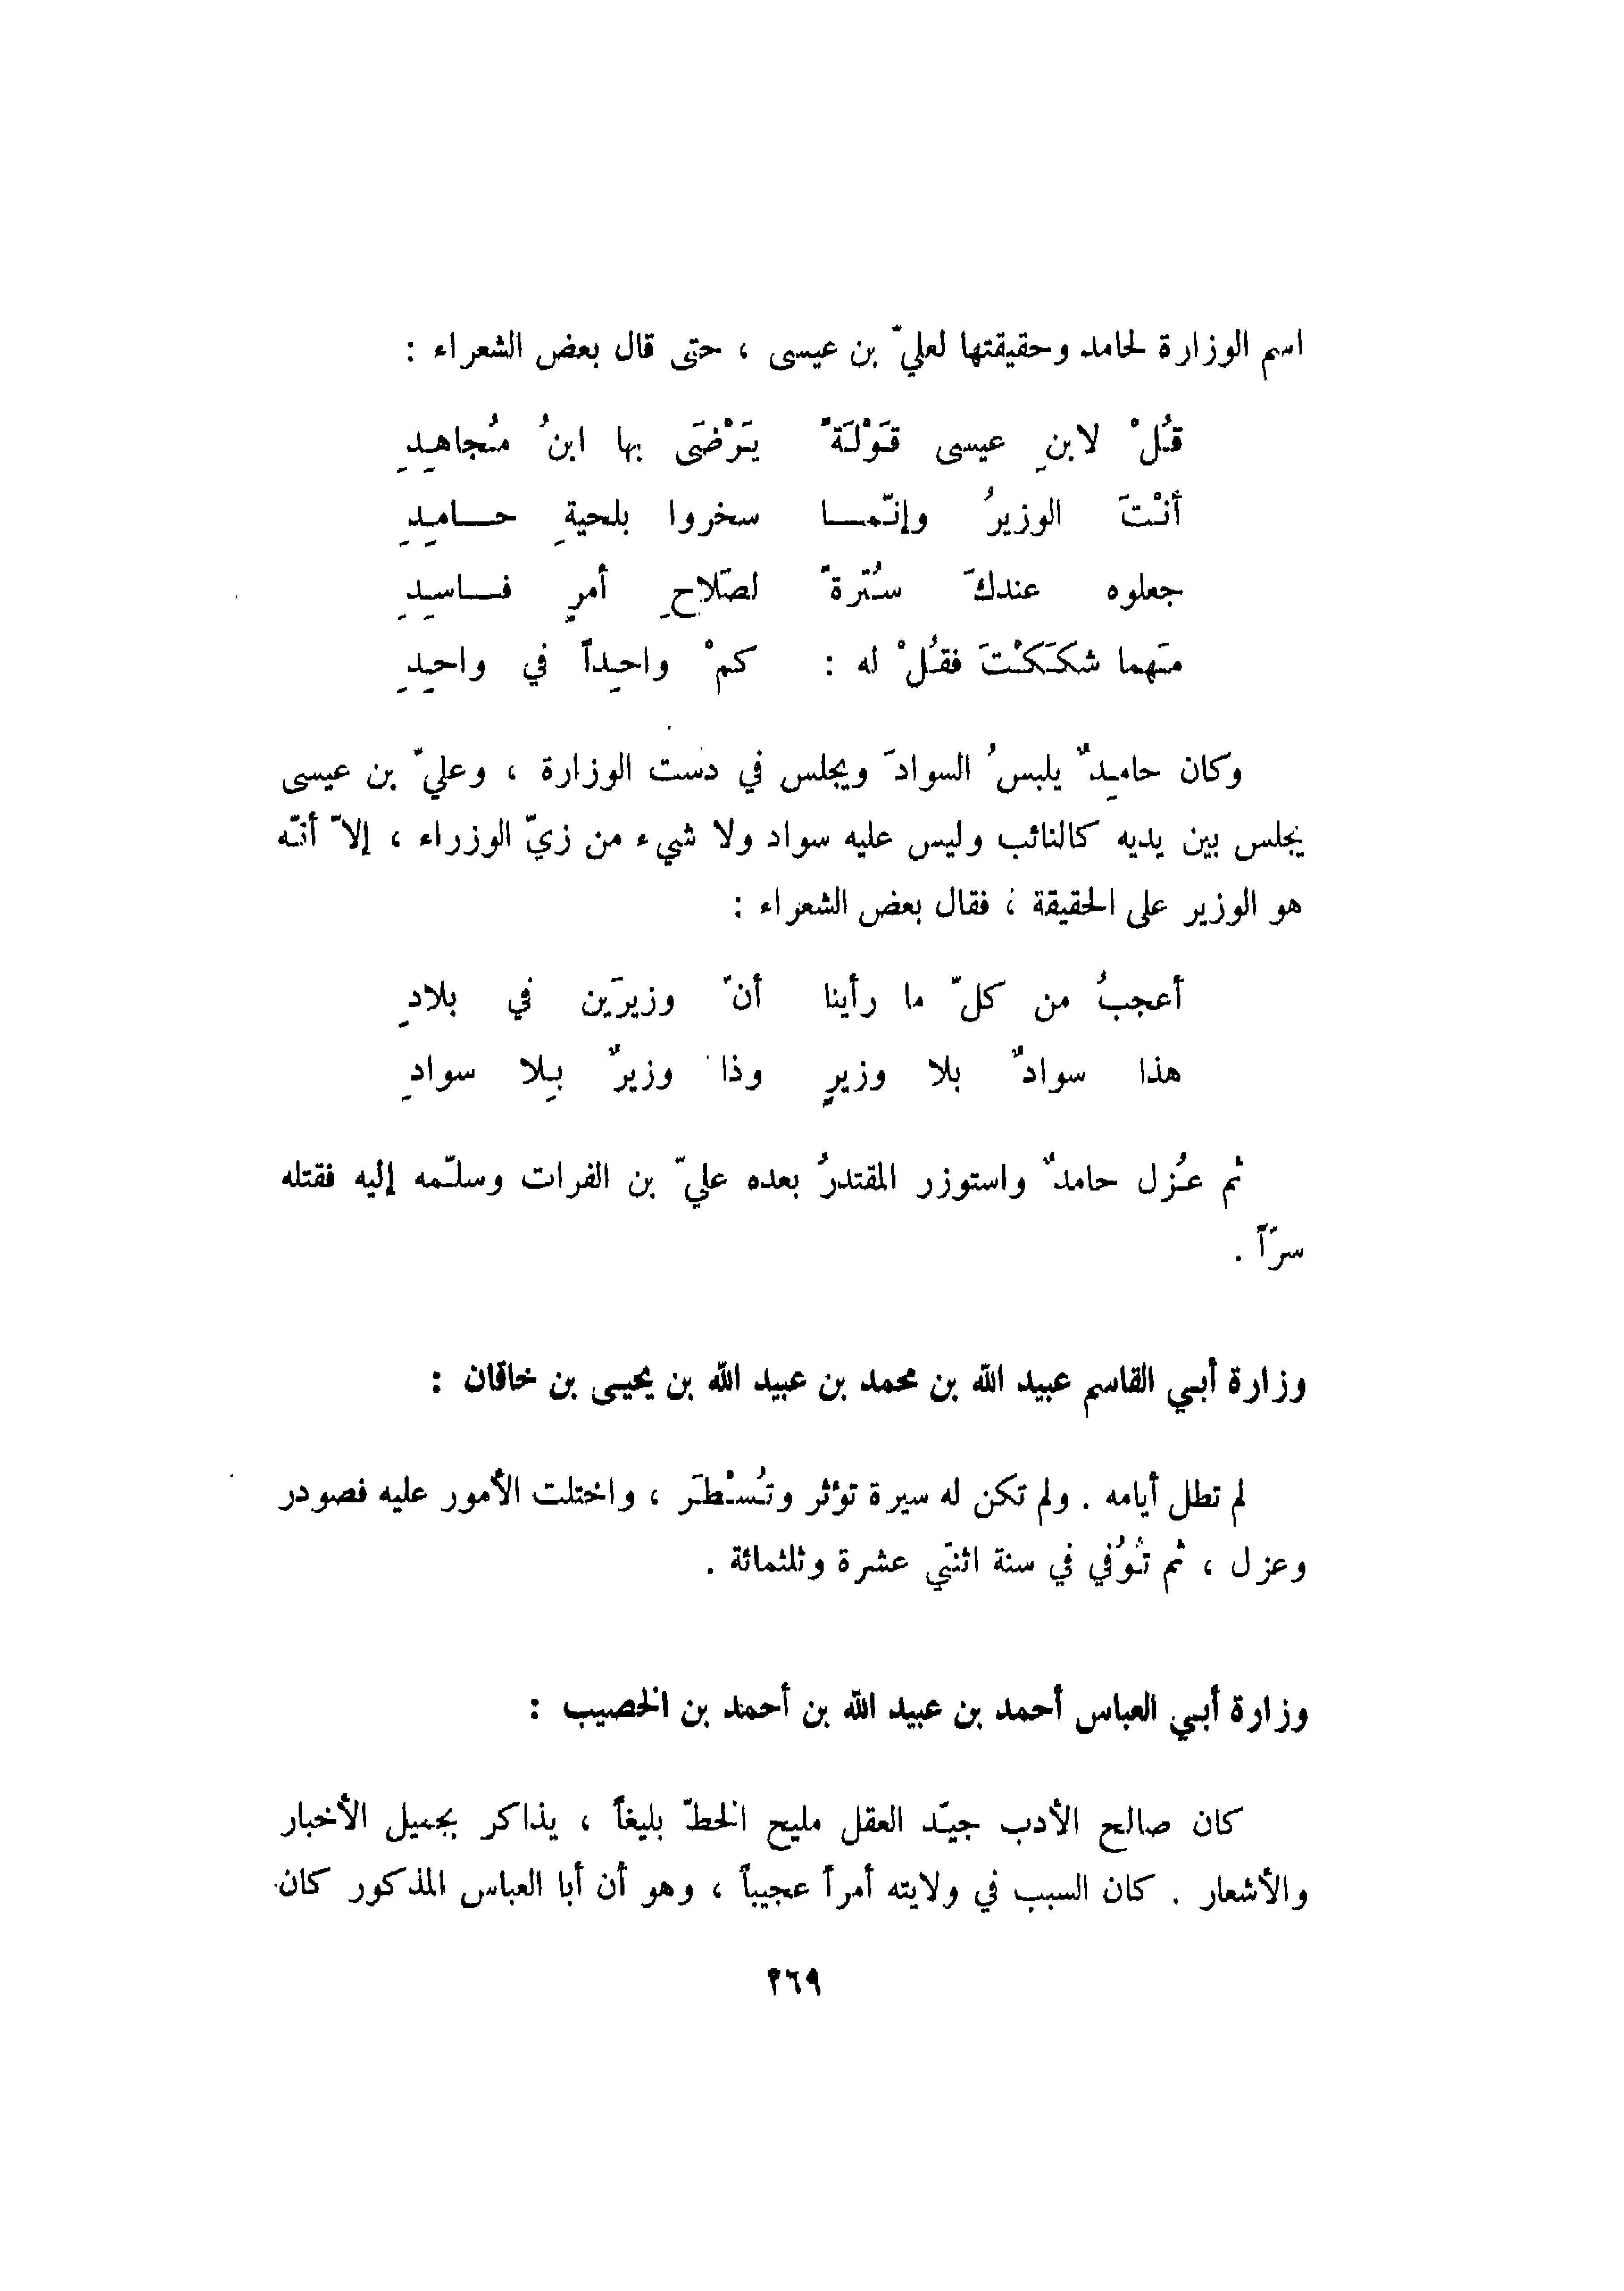 اسم الوزارة لحامد وحقيقتها لعليّ بن عيسى ، حتى قال بعض الشعراء :
قُلْ لابنِ عيسى قَوْلَةً يَرْضَى بها ابنُ مُجاهِدِ
أنْتَ الوزيرُ وإنّما سخروا بلحيةِ حامِدِ
جعلوه عندكَ سُترةً لصَلاحِ أمرٍ فاسِدِ
مَهما شكَكْتَ فقُلْ له : كمْ واحِداً في واحِدِ
وكان حامِدٌ يلبسُ السوادَ ويجلس في دست الوزارة ، وعليّ بن عيسى
يجلس بين يديه كالنائب وليس عليه سواد ولا شيء من زيّ الوزراء ، إلاّ أنّه
هو الوزير على الحقيقة ، فقال بعض الشعراء :
أعجبُ من كلّ ما رأينا أنّ وزيرَين في بلادِ
هذا سوادٌ بلا وزيرٍ وذا وزيرٌ بِلا سوادِ
ثم عُزل حامدٌ واستوزر المقتدرُ بعده عليّ بن الفرات وسلّمه إليه فقتله
سرّاً .
وزارة أبي القاسم عبيد الله بن محمد بن عبيد الله بن يحيى بن خاقان :
لم تطل أيامه . ولم تكن له سيرة تؤثر وتُسْطَر ، واختلت الأمور عليه فصودر
وعزل ، ثم تُوُفي في سنة اثنتي عشرة وثلثمائة .
وزارة أبي العباس أحمد بن عبيد الله بن أحمد بن الخصيب :
كان صالح الأدب جيّد العقل مليح الخطّ بليغاً ، يذاكر بجميل الأخبار
والأشعار . كان السبب في ولايته أمراً عجيباً ، وهو أن أبا العباس المذكور كان
٢٦٩